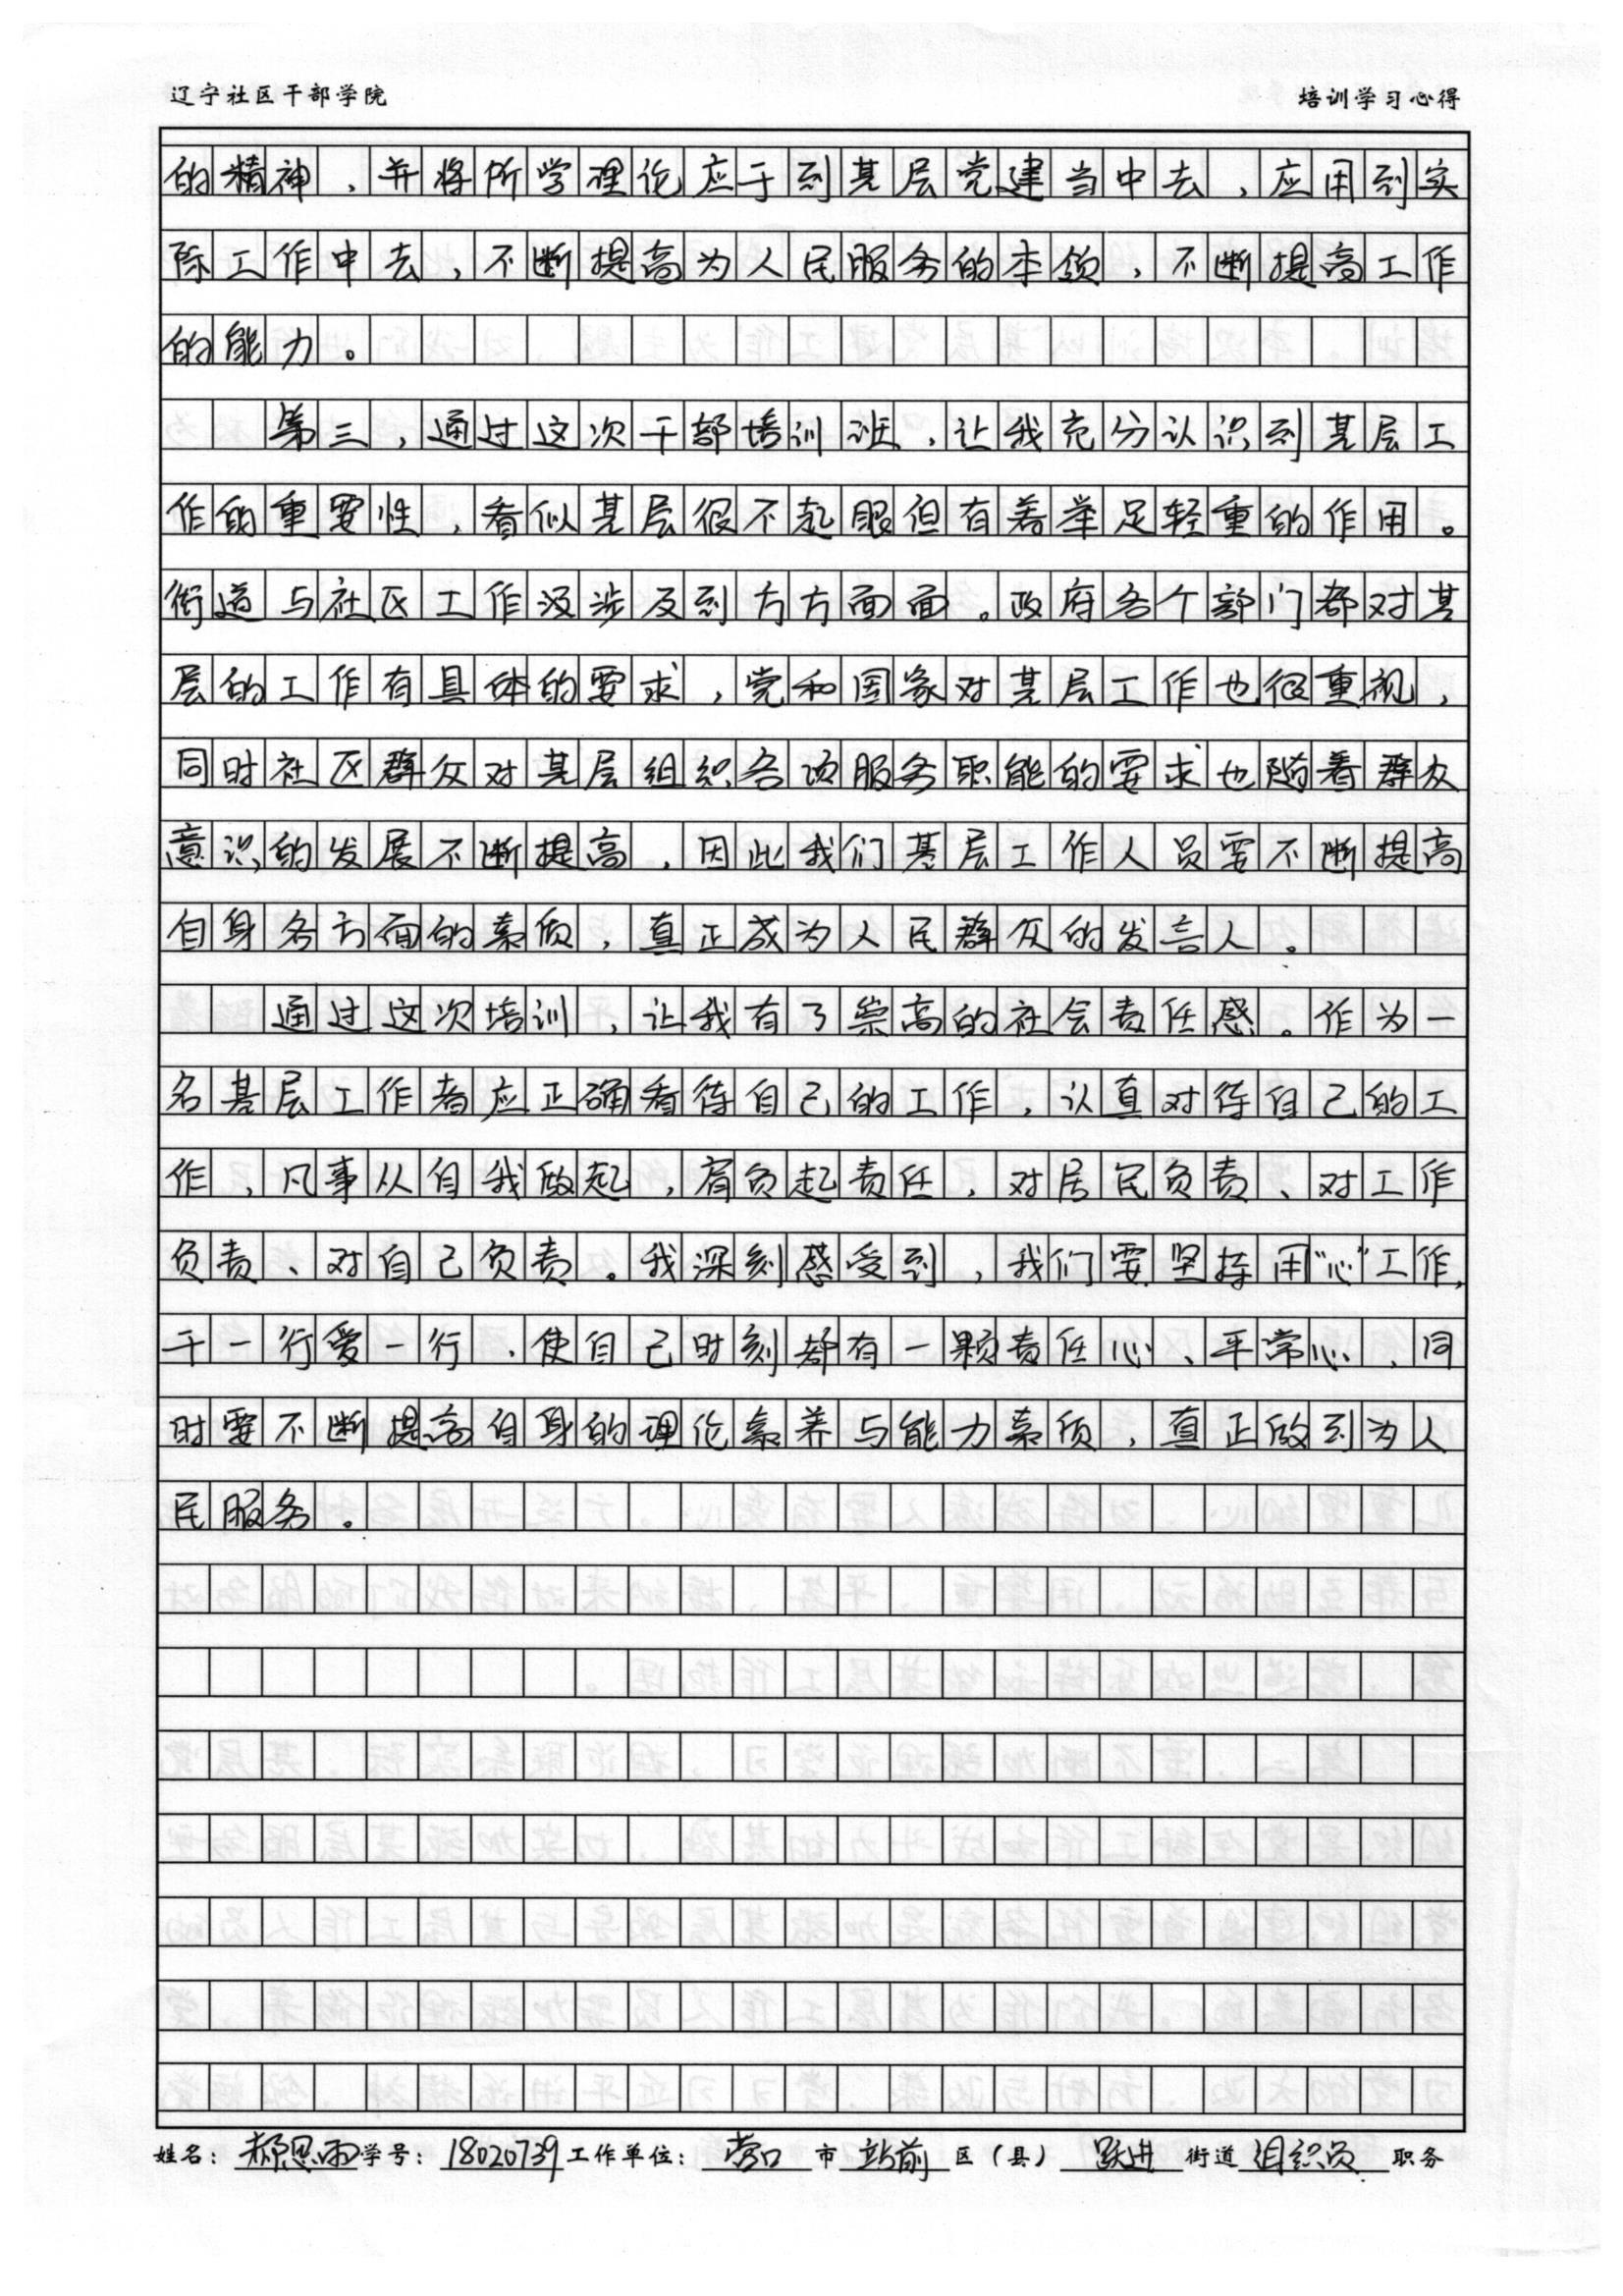 辽宁社区干部学院
培训学习心得
的精神，并将所学理论应于到基层党建当中去，应用到实
际工作中去，不断提高为人民服务的本领，不断提高工作
的能力。
第三，通过这次干部培训班，让我充分认识到基层工
作的重要性，看似基层很不起眼但有着举足轻重的作用。
街道与社区工作没涉及到方方面面。政府各个部门都对基
层的工作有具体的要求，党和国家对基层工作也很重视，
同时社区群众对基层组织各项服务职能的要求也随着群众
意识的发展不断提高，因此我们基层工作人员要不断提高
自身各方面的素质，真正成为人民群众的发言人。
通过这次培训，让我有了崇高的社会责任感。作为一
名基层工作者应正确看待自己的工作，认真对待自己的工
作，凡事从自我做起，肩负起责任，对居民负责、对工作
负责、对自己负责。我深刻感受到，我们要坚持用“心”工作，
干一行爱一行，使自己时刻都有一颗责任心、平常心，同
时要不断提高自身的理论素养与能力素质，真正做到为人
民服务。
姓名：思雨学号：18020739工作单位：营口市站前区（县）跃进街道组织员职务